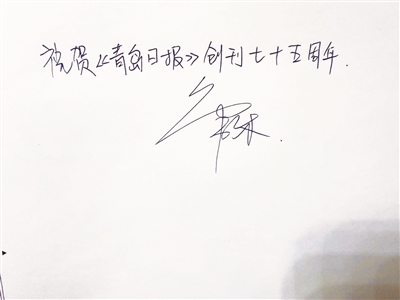 祝贺《青岛日报》创刊七十五周年.